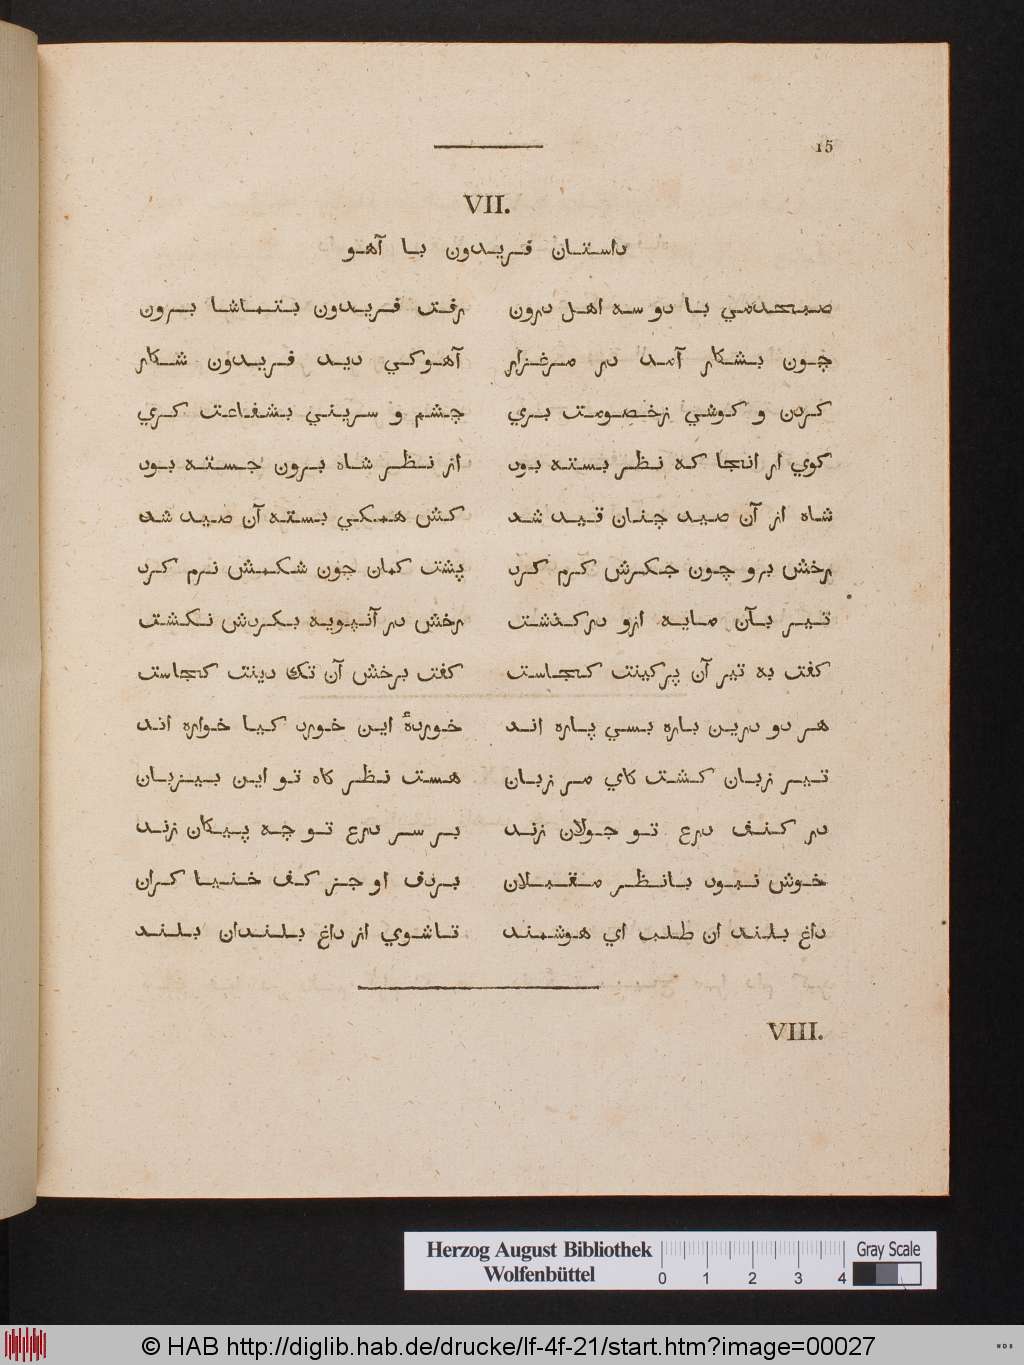 15
VII.
داستان فريدون با آهو
صبحدمي با دو سه اهل درون رفت فريدون بتماشا برون
چون بشكار آمد در مرغزار آهوكي ديد فريدون شكار
كردن و كوشي زخصومت بري چشم و سريني بشفاعت كري
كوي ار انجا كه نظر بسته بود از نظر شاه برون جسته بود
شاه از آن صيد چنان قيد شد كش همكي بسته آن صيد شد
رخش برو چون جكرش كرم كرد پشت كمان جون شكمش نرم كرد
تير بآن مايه ازو دركذشت رخش در آنپويه بكردش نكشت
كفت به تير آن پركينت كجاست كفت برخش آن تك دينت كجاست
هر دو درين باره بسي پاره اند خوردهٔ اين خورد كيا خواره اند
تير زبان كشت كاي مر زبان هست نظر كاه تو اين بيزبان
در كنف درع تو جولان زند بر سر درع تو چه پيكان زند
خوش نبود بانظر مقبلان بردف او جز كف خنيا كران
داغ بلند ان طلب اي هوشمند تاشوي از داغ بلندان بلند
VIII.
Herzog August Bibliothek
Wolfenbüttel
0 1 2 3 4
Gray Scale
© HAB http://diglib.hab.de/drucke/lf-4f-21/start.htm?image=00027